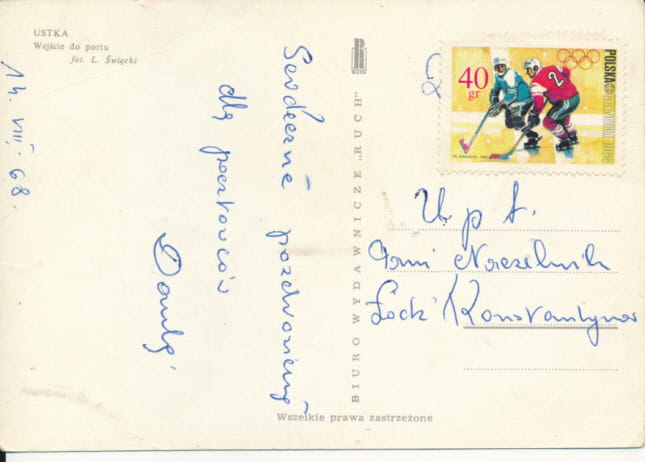 USTKA
Wejście do portu
fot. L. Święcki
14. VIII. 68.
Serdeczne pozdrowienia
dla pocztowców
BIURO WYDAWNICZE „RUCH”
RUCH
40
gr
POLSKA
GRENOBLE 1968
2
U. p. t.
Pani Naczelnik
Łódź Konstantynów
Wszelkie prawa zastrzeżone